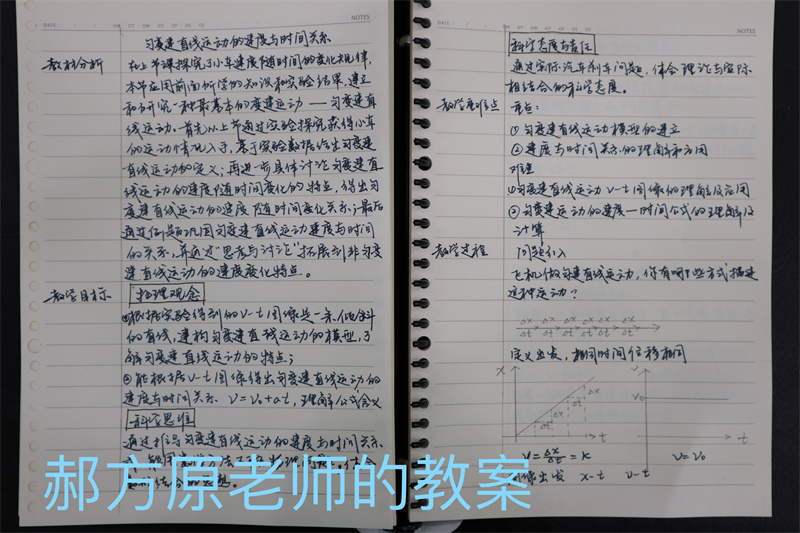 DATE
NOTES
匀变速直线运动的速度与时间关系
教材分析
在上节课探究了小车速度随时间的变化规律，
本节应用前面所学的知识和实验结果，建立
和研究一种最基本的变速运动——匀变速直
线运动。首先从上节通过实验探究获得小车
的运动情况入手，基于实验数据给出匀变速
直线运动的定义；再进一步具体讨论匀变速直
线运动的速度随时间变化的特点，得出匀
变速直线运动的速度随时间变化关系；最后
通过例题巩固匀变速直线运动速度与时间
的关系，并通过“思考与讨论”拓展到非匀变
速直线运动的速度变化特点。
教学目标
物理观念
①根据实验得到的v-t图像是一条倾斜
的直线，建构匀变速直线运动的模型，了
解匀变速直线运动的特点；
②能根据v-t图像得出匀变速直线运动的
速度与时间关系 v=v₀+at，理解公式含义
科学思维
通过推导匀变速直线运动的速度与时间关系
郝方原老师的教案
NOTES
科学态度与责任
通过实际汽车刹车问题，体会理论与实际
相结合的科学态度。
教学重难点
重点：
①匀变速直线运动模型的建立
②速度与时间关系的理解和应用
难点
①匀变速直线运动v-t图像的理解及应用
②匀变速运动的速度—时间公式的理解及
计算
教学过程
问题引入
飞机做匀速直线运动，你有哪些方式描述
这种运动？
Δx Δx Δx Δx Δx Δx
Δt Δt Δt Δt Δt Δt
定义出发，相同时间位移相同
x
Δx
Δt
t
v
v₀
t
v=Δx/Δt=k
v=v₀
图像出发 x-t v-t